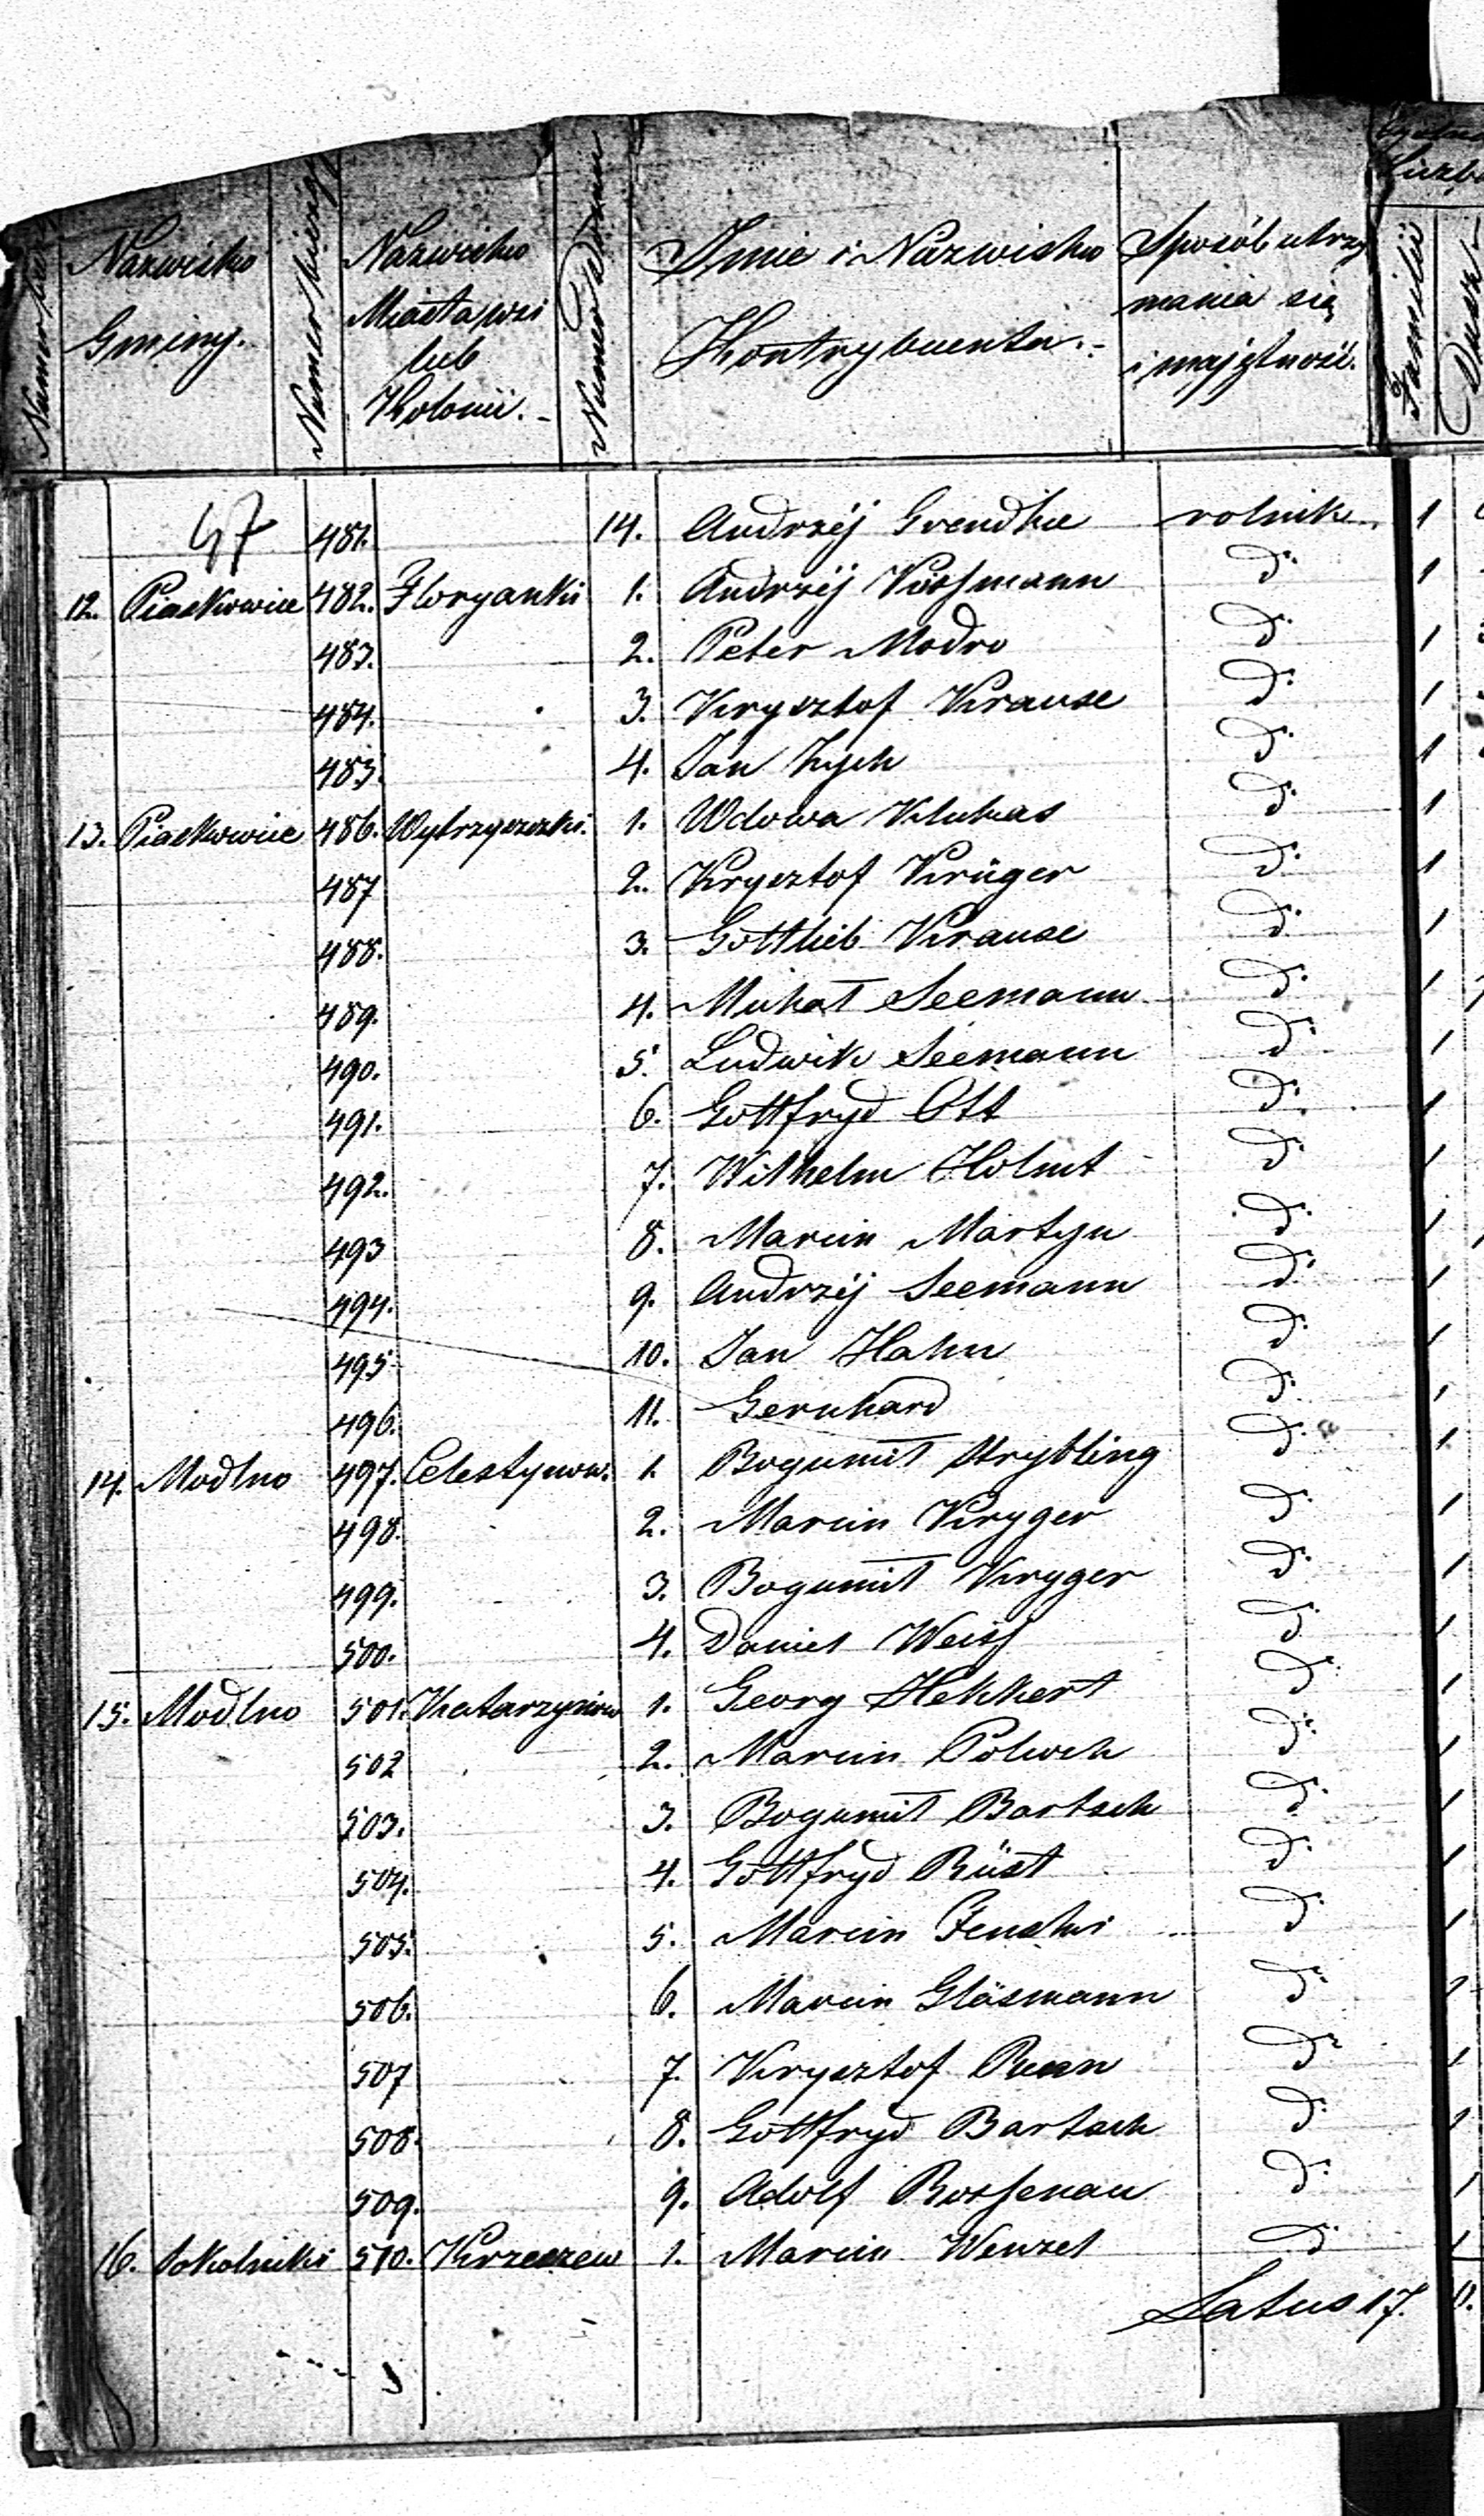 Nazwisko Gminy.
Numer bieżący
Nazwisko
Miasta, wsi
lub
Kolonii.
Numer Domu
Imie i Nazwisko
Kontrybuenta.
Sposób utrzy
mania się
i majętność.
Familii
Dusz
47 481. 14. Andrzéj Grendke rolnik. 1
12. Piaskowice 482. Floryanki 1. Andrzéj Kossmann d. 1
483. 2. Peter Modro d. 1
484. 3. Krysztof Krause d. 1
485. 4. Jan Zych d. 1
13. Piaskowice 486. Wytrzyszczki. 1. Wdowa Klukas d. 1
487 2. Krysztof Krüger d. 1
488. 3. Gottlieb Krause d. 1
489. 4. Michał Seemann d. 1
490. 5. Ludwik Seemann d. 1
491. 6. Gottfryd Ott d. 1
492. 7. Wilhelm Holmt d. 1
493 8. Marcin Martyn d. 1
494. 9. Andrzéj Seemann d. 1
495. 10. Jan Hahn d. 1
496. 11. Gernhard d. 1
14. Modlno 497. Celestynow. 1. Bogumił Strybling d. 1
498. 2. Marcin Kryger d. 1
499. 3. Bogumił Kryger d. 1
500. 4. Daniel Weiss d. 1
15. Modlno 501. Katarzynow 1. Georg Hekkert d. 1
502 2. Marcin Polwoch d. 1
503. 3. Bogumił Bartsch d. 1
504. 4. Gottfryd Büst d. 1
505. 5. Marcin Zenski d. 1
506. 6. Marcin Gläsmann d. 1
507 7. Krysztof Bunn d. 1
508. 8. Gottfryd Bartsch d. 1
509. 9. Adolf Bossenau d. 1
16. Sokolniki 510. Krzeszew 1. Marcin Wenzel d. 1
Latus 17.